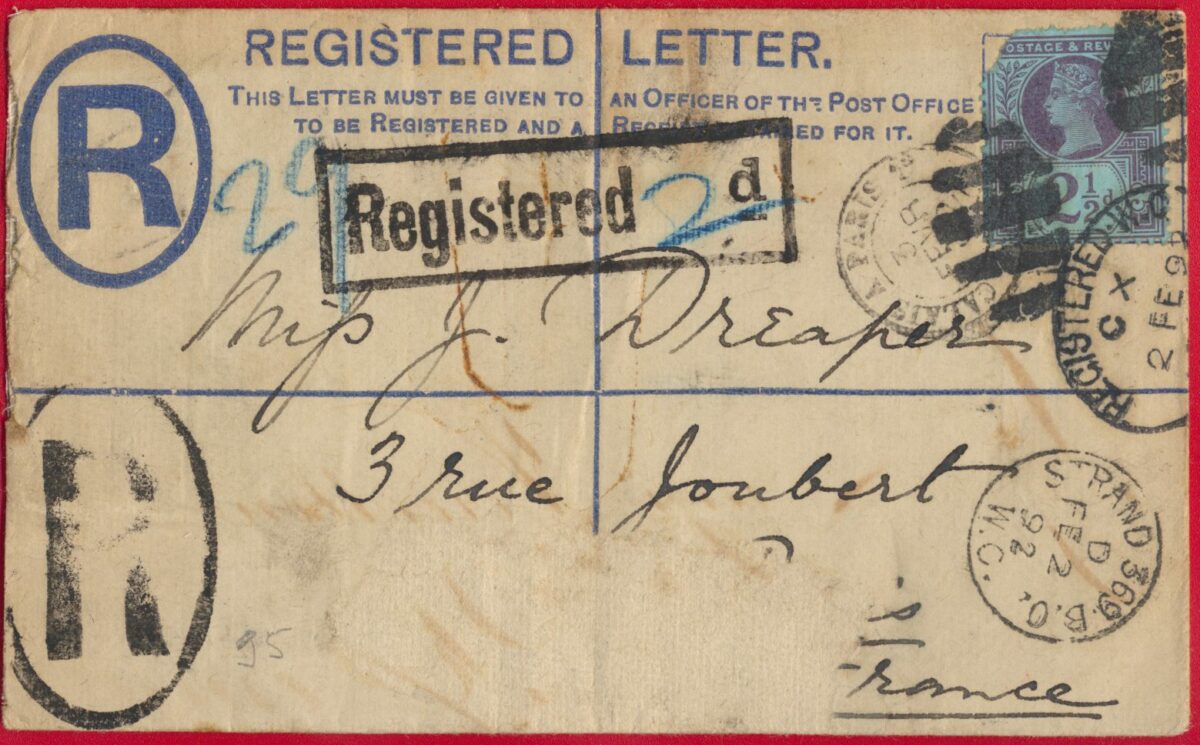 REGISTERED LETTER.
THIS LETTER MUST BE GIVEN TO AN OFFICER OF THE POST OFFICE
TO BE REGISTERED AND A FOR IT.
R
POSTAGE & REV
2½d
29
Registered 2 d
CALAIS A PARIS
3 FEB
REGISTERED W.C.
CX
2 FE 92
Miss J. Dreaper
3 rue Joubert
France
STRAND 369. B.O.
W.C.
D
FE 2
92
R
95